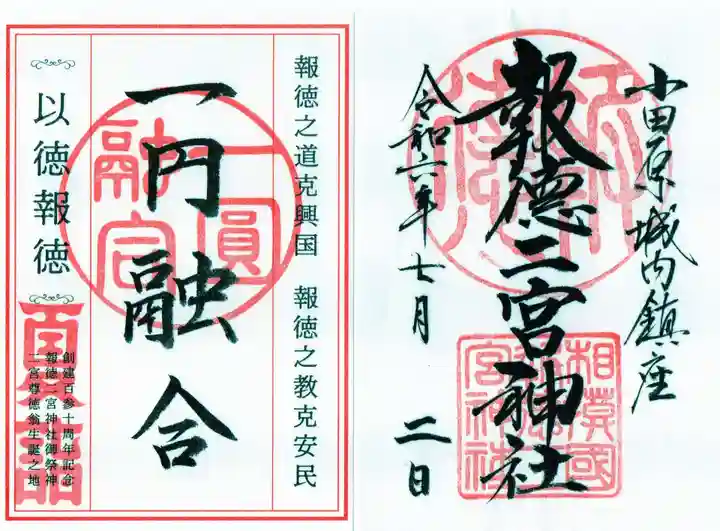 小田原城内鎮座
報徳二宮神社
令和六年七月 二日
相模國
報徳二
宮神社
報徳之道克興国 報徳之教克安民
一円融合
一圓
融合
以徳報徳
夏詣
創建百参十周年記念
報徳二宮神社御祭神
二宮尊徳翁生誕之地